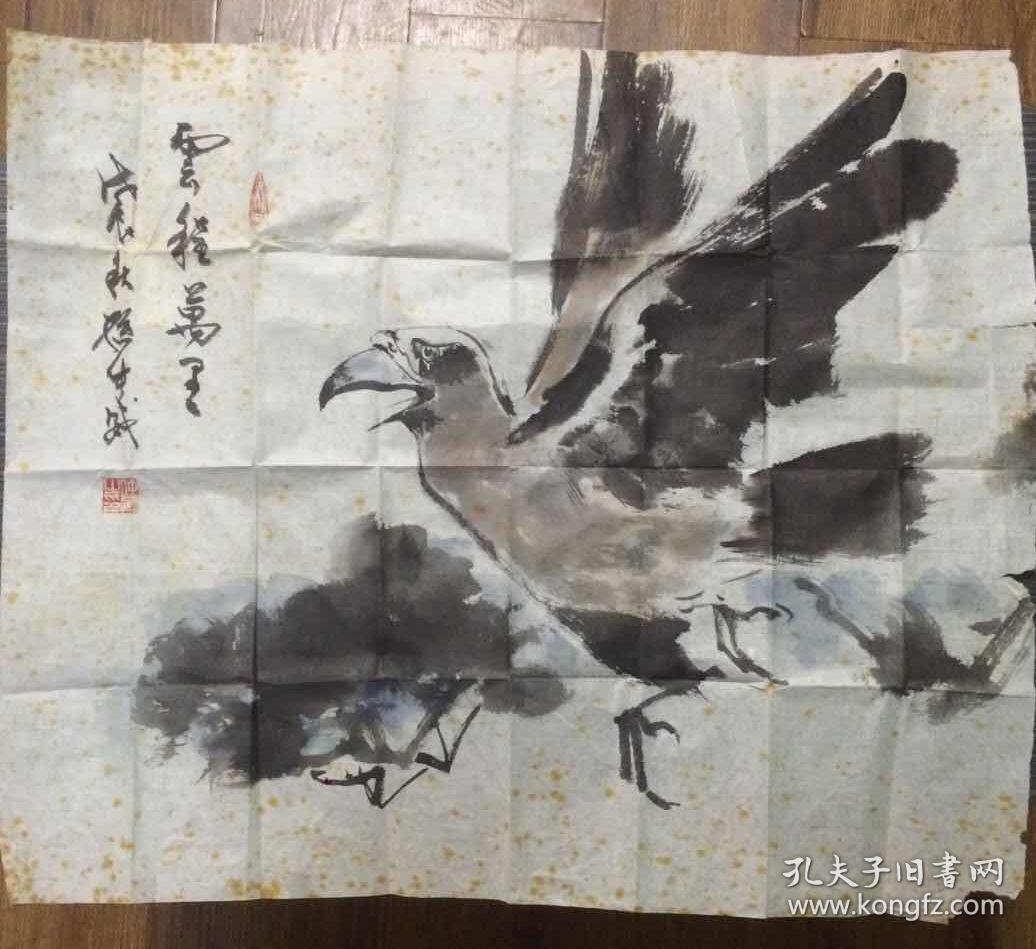 雲程萬里
戊辰秋
孔夫子旧书网
www.kongfz.com